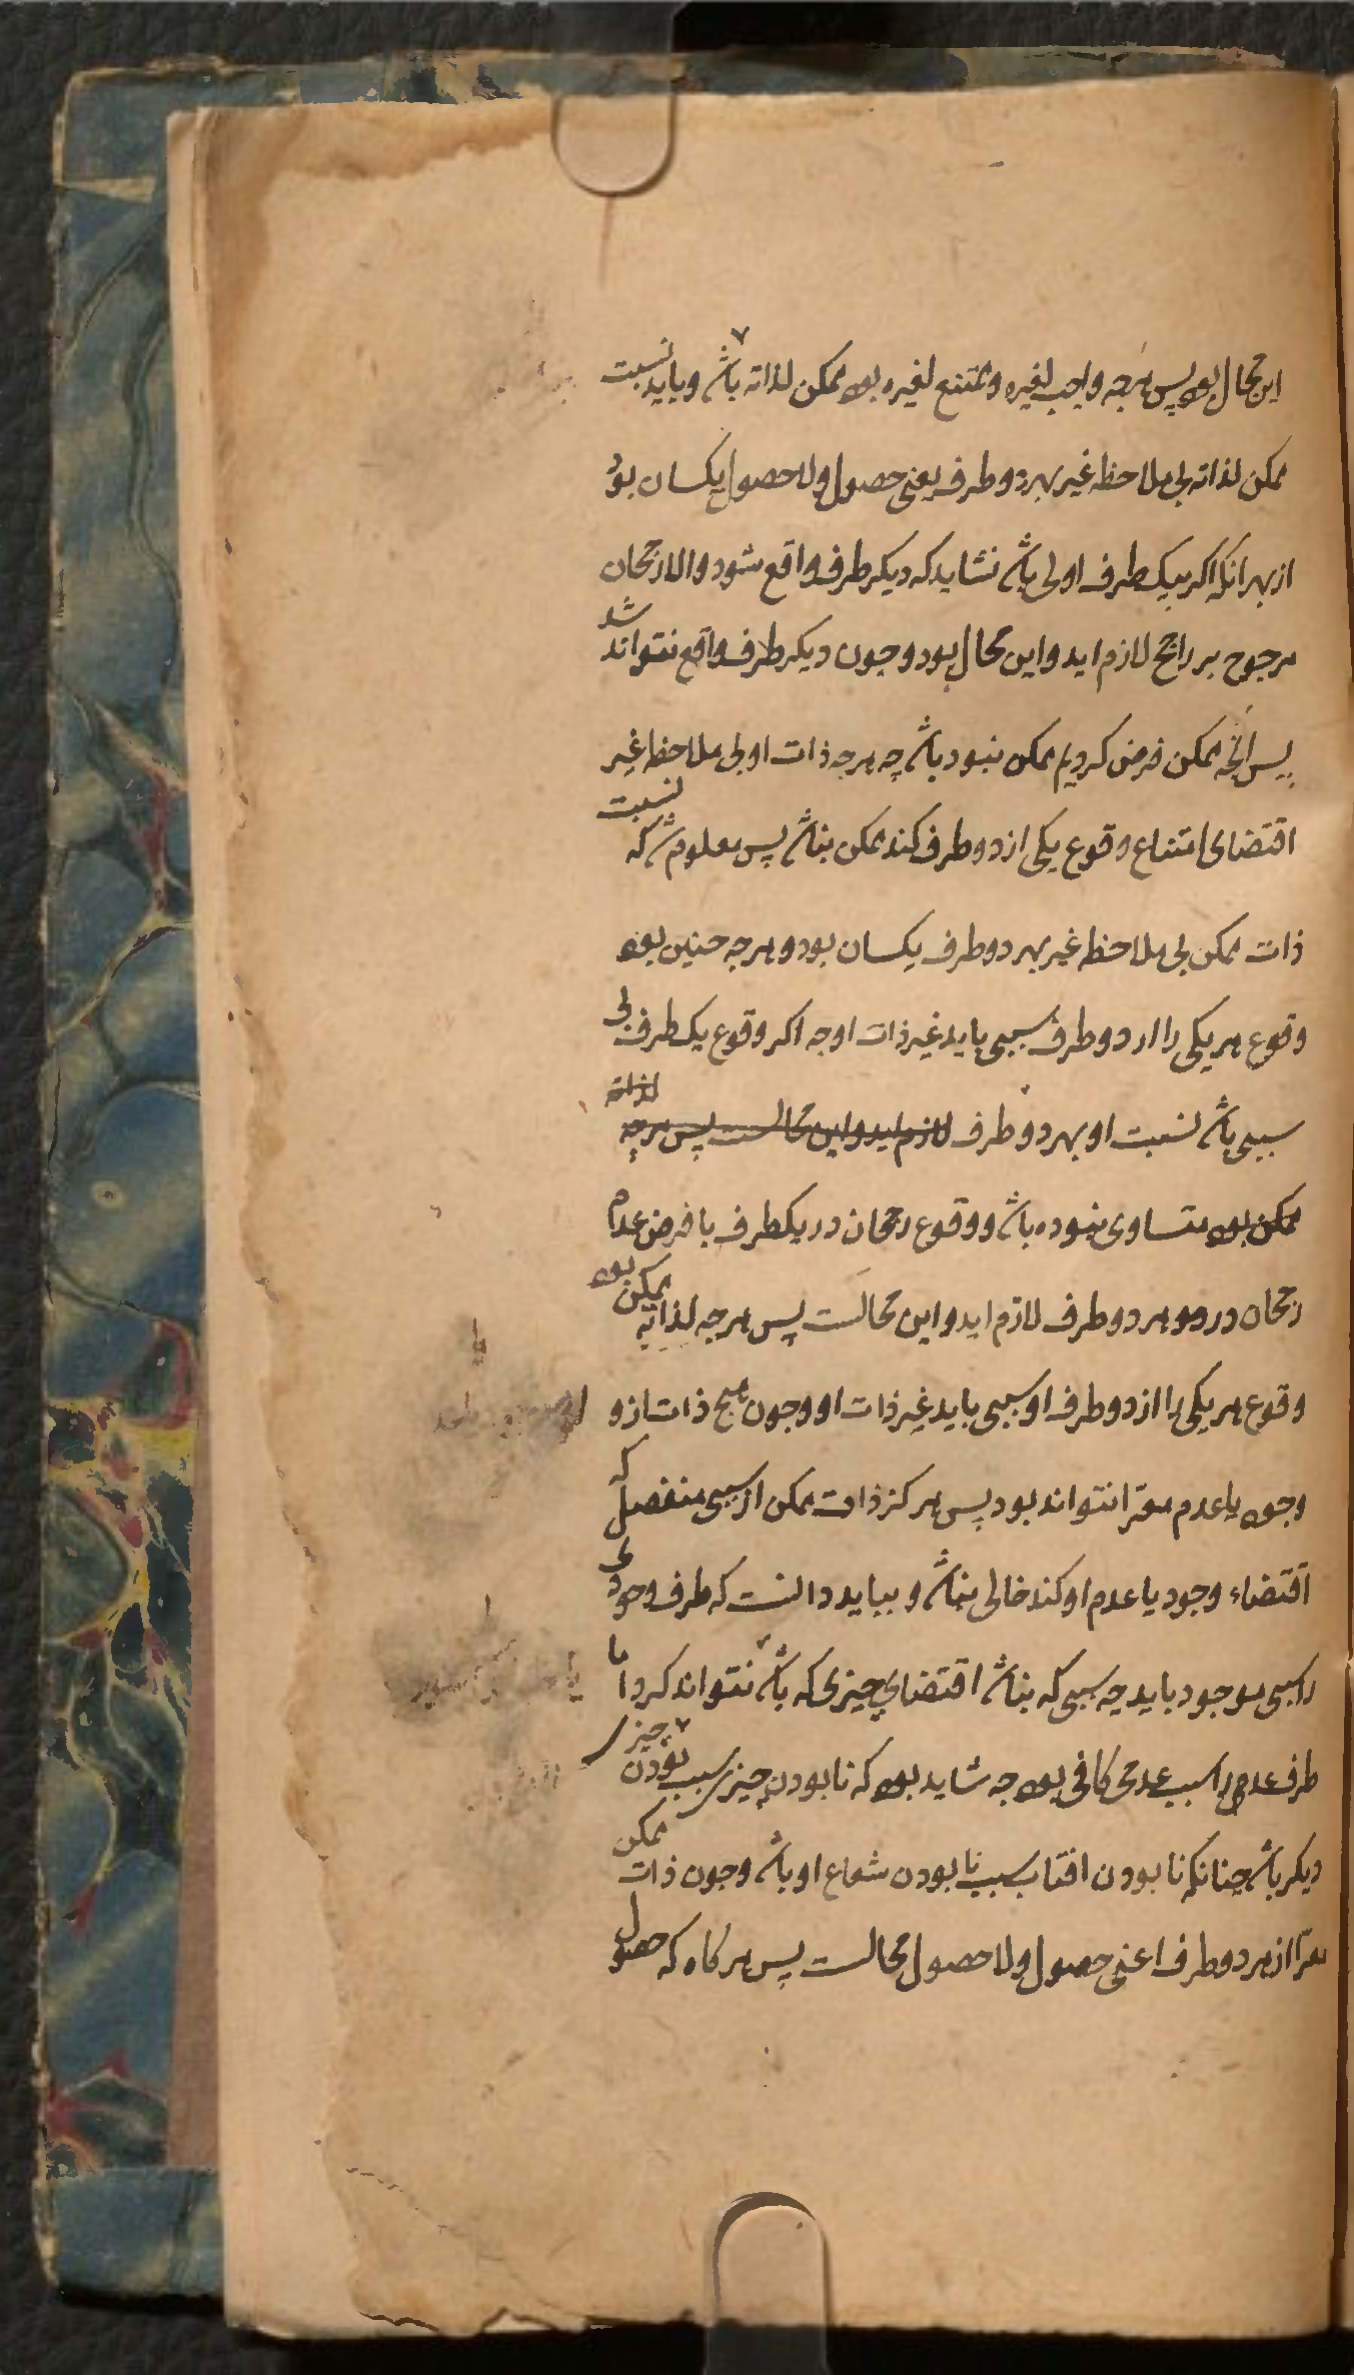 این محال بود پس هرچه واجب لغیره و ممتنع لغیره بود ممکن لذاته باشد و باید نسبت
ممکن لذاته بی ملاحظه غیر بهر دو طرف یعنی حصول و لا حصول یکسان بود
از بهر انکه اکر بیک طرف اولی باشد نشاید که دیکر طرف واقع شود والا رجحان
مرجوح بر راجح لازم اید و این محال بود و چون دیکر طرف واقع نتواند شد
پس انچه ممکن فرض کردیم ممکن نبود باشد چه هرچه ذات او بی ملاحظه غیر
اقتضای امتناع وقوع یکی از دو طرف کند ممکن نباشد پس معلوم شد که نسبت
ذات ممکن بی ملاحظه غیر بهر دو طرف یکسان بود و هرچه چنین بود
وقوع هر یکی را از دو طرف سببی باید غیر ذات او چه اکر وقوع یک طرف بی
سببی باشد نسبت او بهر دو طرف لازم اید و این محالست پس هرچه لذاته
ممکن بود متساوی نبوده باشد و وقوع رجحان در یکطرف با فرض عدم
رجحان در هر دو طرف لازم اید و این محالست پس هرچه لذاته ممکن بود
وقوع هر یکی را از دو طرف او سببی باید غیر ذات او و چون هیچ ذات از و
وجود یا عدم معرّا نتواند بود پس هرکز ذات ممکن از سببی منفصل که
اقتضاء وجود یا عدم او کند خالی نباشد و بباید دانست که طرف وجودی
را سببی موجود باید چه سببی که نباشد اقتضای چیزی که باشد نتواند کرد اما
طرف عدمی را سبب عدمی کافی بود چه شاید بود که نابودن چیزی سبب نبودن چیزی
دیکر باشد چنانکه نابودن افتاب سبب نابودن شعاع او باشد و چون ذات ممکن
معرّا از هر دو طرف اعنی حصول و لا حصول محالست پس هرکاه که حصول